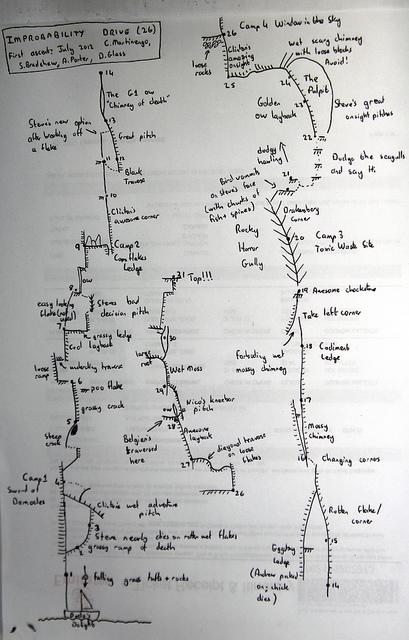 IMPROBABILITY DRIVE (26)
First ascent: July 2012 C. Martinengo,
S. Bradshaw, A. Porter, D. Glass
14
The G1 ow
"Chimney of death"
13
Steve's new option
after backing off
a flake
Great pitch
11
12
Black
Traverse
10
Clinton's
awesome corner
9
Camp 2
Cornflakes
Ledge
ow
8
easy looking
flake (not used)
Steves bad
decision pitch
7
grassy ledge
Cool layback
loose
ramp
undercling traverse
6
poo flake
grassy crack
5
Steep
crack
Camp 1
Sword of
Damocles
4
Clinton's wet adventure
pitch
3
Steve nearly dies on rotten wet flakes
grassy ramp of death
2
1
falling grass tufts + rocks
Delight
31 Top!!!
30
loose
rock
Wet Moss
29
Nico's kneebar
pitch
ow
28
Belgian's
traversed
here
Awesome
layback
27
diagonal traverse
on loose
flakes
26
26
Camp 4 Window in the Sky
loose
rocks
Clinton's
amazing
onsight
25
wet scary chimney
with loose blocks
Avoid!
24
The
Pulpit
23
Golden
ow layback
Steve's great
onsight pitches
22
dodgy
hauling!
Dodge the seagulls
and say Hi.
21
Bird vommits
on Steve's face
(with chunks of
fish + spines)
Drakensberg
Corner
Rocky
Horror
Gully
20
Camp 3
Toxic Waste Site
19
Awesome chockstone
Take left corner
18
Forboding wet
mossy chimney
Codiment
Ledge
17
Mossy
chimney
16
Changing corners
Rotten flake/
corner
15
Eggstray
Ledge
(Andrew puked
on; chick
dies)
14